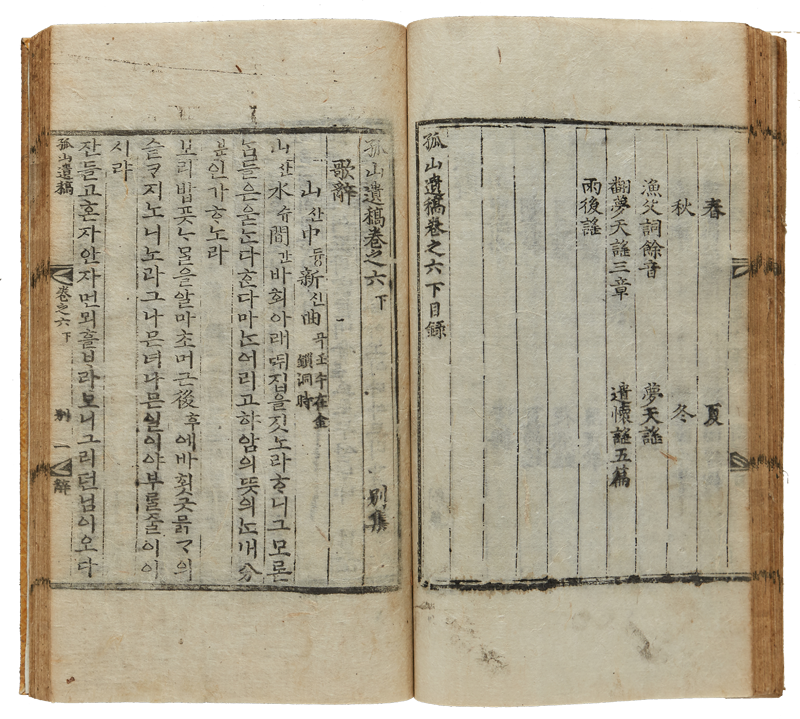 春 夏
秋 冬
漁父詞餘音 夢天謠
翻夢天謠三章 遣懷謠五篇
雨後謠
孤山遺稿卷之六下目錄
孤山遺稿卷之六 下 別集
歌辭
山산中듕新신曲곡 壬午在金鎖洞時
山산水슈間간바회아래ᄠᅱ집을짓노라ᄒᆞ니그모론
ᄂᆞᆷ들은욷ᄂᆞᆫ다ᄒᆞᆫ다마ᄂᆞᆫ어리고햐암의ᄠᅳᆺ의ᄂᆞᆫ내分
분인가ᄒᆞ노라
보리밥픗ᄂᆞᄆᆞᆯ을알마초머근後후에바횟긋믉ᄀᆞ의
슬ᄏᆞ지노니노라그나믄녀나믄일이야부롤줄이이
시랴
잔들고혼자안자먼뫼흘ᄇᆞ라보니그리던님이오다
孤山遺稿 卷之六 下 別 一 辭